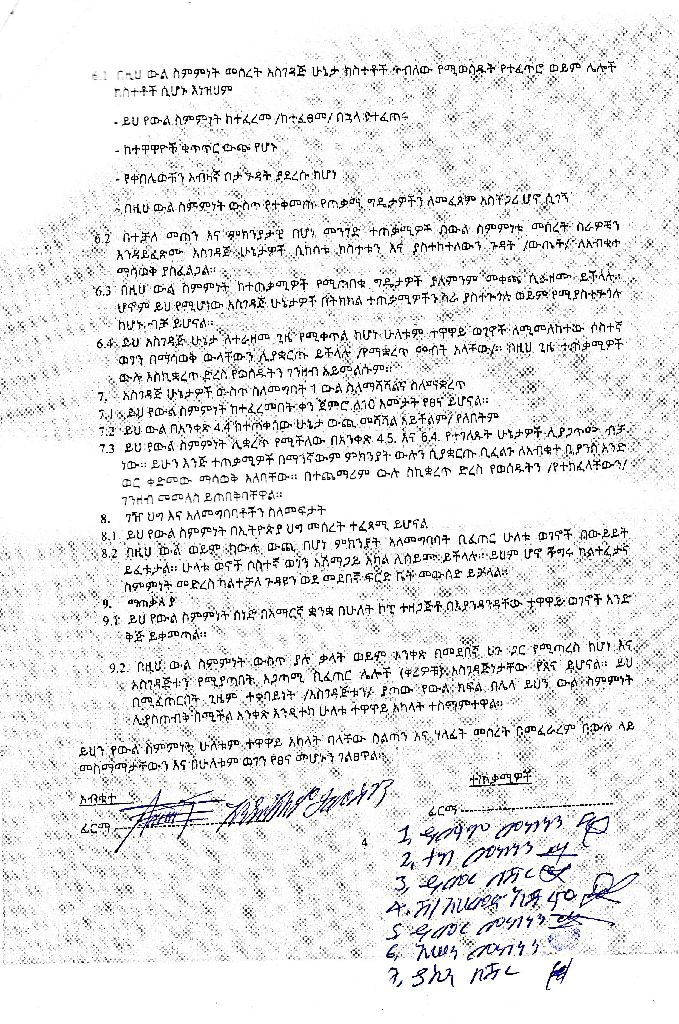 6.1 በዚህ ውል ስምምነት መሰረት አስገዳጅ ሁኔታ ክስተቶች ተብለው የሚወሰዱት የተፈጥሮ ወይም ሌሎች
ክስተቶች ሲሆኑ እነዝህም
- ይህ የውል ስምምነት ከተፈረመ /ከተፈፀመ/ በኋላ የተፈጠሩ
- ከተዋዋዮቹ ቁጥጥር ውጭ የሆኑ
- የቀበሌውቸን አብዛኛ ቦታ ጉዳት ያደረሱ ከሆነ
- በዚሁ ውል ስምምነት ውስጥ የተቅመጡ የጠቃሚ ግዴታዎችን ለመፈጸም አስቸጋሪ ሆኖ ሲገኝ
6.2 በተቻለ መጠን እና ምክንያታዊ በሆነ መንገድ ተጠቃሚዎች በውል ስምምነቱ መሰረት ስራዎቹን
እንዳይፈጽሙ አስገዳጅ ሁኔታዎች ሲከሰቱ ክስተቱን እና ያስተከተለውን ጉዳት /ውጤት/ ለአብቁተ
ማሳወቅ ያስፈልጋል።
6.3 በዚህ ውል ስምምነት ከተጠቃሚዎች የሚጠበቁ ግዴታዎች ያለምንም መቀጫ ሊራዘሙ ይችላሉ።
ሆኖም ይህ የሚሆነው አስገዳጅ ሁኔታዎች በትክክል ተጠቃሚዎችን ስራ ያስተጓጎሉ ወይም የሚያስተጓጎሉ
ከሆኑ ብቻ ይሆናል።
6.4. ይህ አስገዳጅ ሁኔታ ለተራዘመ ጊዜ የሚቀጥል ከሆነ ሁለቱም ተዋዋይ ወገኖች ለሚመለከተው ሶስተኛ
ወገን በማሳወቅ ውላቸውን ሊያቋርጡ ይችላሉ /የማቋረጥ መብት አላቸው/። በዚህ ጊዜ ተጠቃሚዎች
ውሉ እስኪቋረጥ ድረስ የወሰዱትን ገንዘብ አይመልሱም።
7. አስገዳጅ ሁኔታዎች ውስጥ ስለመግባት 1 ውል ስለማሻሻልና ስለማቋረጥ
7.1 ይህ የውል ስምምነት ከተፈረመበት ቀን ጀምሮ ለ10 አመታት የፀና ይሆናል።
7.2 ይህ ውል በአንቀጽ 4.4 ከተጠቀሰው ሁኔታ ውጪ መሻሻል አይችልም/ የለበትም
7.3 ይህ የውል ስምምነት ሊቋረጥ የሚችለው በአንቀጽ 4.5. እና 6.4. የተገለጹት ሁኔታዎች ሊያጋጥሙ ብቻ
ነው። ይሁን እንጅ ተጠቃሚዎች በማናኛውም ምክንያት ውሉን ሲያቋርጡ ቢፈልጉ ለአብቁተ ቢያንስ አንድ
ወር ቀድመው ማሳወቅ አለባቸው። በተጨማሪም ውሉ ስኪቋረጥ ድረስ የወሰዱትን /የተከፈላቸውን/
ገንዘብ መመላስ ይጠበቅባቸዋል።
8. ገዥ ህግ እና አለመግባባቶችን ስለመፍታት
8.1. ይህ የውል ስምምነት በኢትዮጵያ ህግ መሰረት ተፈጻሚ ይሆናል
8.2 በዚህ ውል ወይም ከውሉ ውጪ በሆነ ምክንያት አለመግባባት ቢፈጠር ሁለቱ ወገኖች በውይይት
ይፈቱታል። ሁለቱ ወኖች ሶስተኛ ወገን አሸማጋይ አካል ሊሰይሙ ይችላሉ። ይህም ሆኖ ችግሩ ካልተፈታና
ስምምነት መድረስ ካልተቻለ ጉዳዩን ወደ መደበኛ ፍርድ ቤት መውሰድ ይቻላል።
9. ማጠቃለያ
9.1 ይህ የውል ስምምነት ሰነድ በአማርኛ ቋንቋ በሁለት ኮፒ ተዘጋጅቶ በእያንዳንዳቸው ተዋዋይ ወገኖች አንድ
ቅጅ ይቀመጣል።
9.2. በዚህ ውል ስምምነት ውስጥ ያሉ ቃላት ወይም አንቀጽ በመደበኛ ህጉ ጋር የሚጣረስ ከሆነ እና
አስገዳጅቱን የሚያጣበት አጋጣሚ ቢፈጠር ሌሎች (ቀሪዎቹ) አስገዳጅነታቸው የፀና ይሆናል። ይህ
በሚፈጠርበት ጊዜም ተቀባይነት /አስገዳጅቱን/ ያጣው የውል ክፍል በሌላ ይህን ውል ስምምነት
ሊያስጠብቅ በሚችል አንቀጽ እንዲተካ ሁለቱ ተዋዋይ አካላት ተስማምተዋል።
ይህን የውል ስምምነት ሁለቱም ተዋዋይ አካላት ባላቸው ስልጣን እና ሃላፊት መሰረት በመፈራረም በውሉ ላይ
መስማማታቸውን እና በሁለቱም ወገን የፀና መሆኑን ገልፀዋል።
አብቁተ
ተጠቃሚዎች
ፊርማ
ፊርማ
4
1,
2,
3,
4.
5
6,
7,